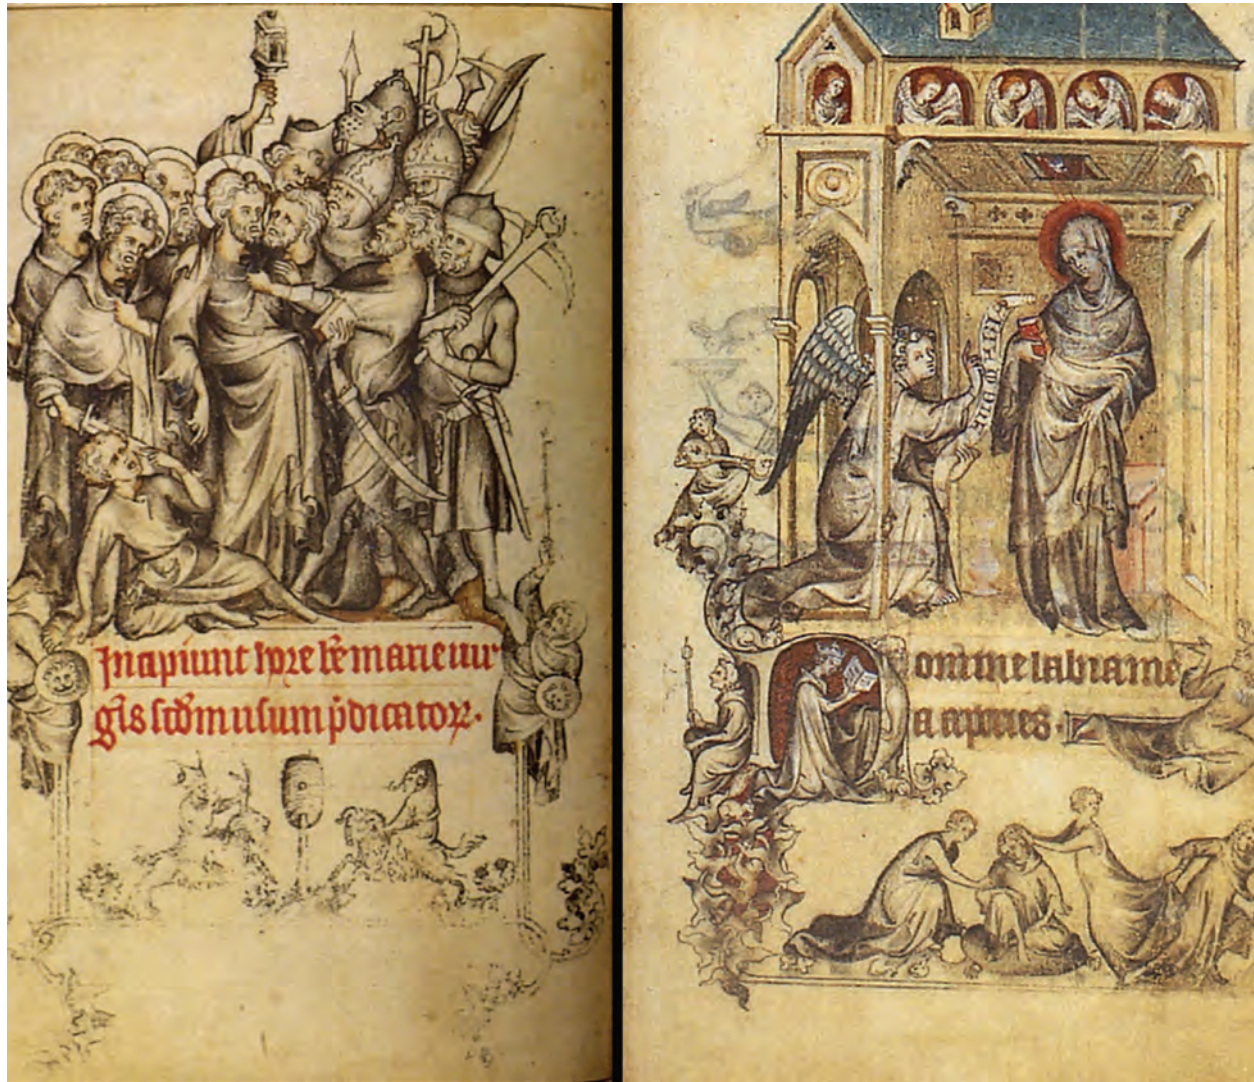 Incipiunt hore be marie uir
gis scdm usum pdicatoꝝ.
aue maria
Domine labia me
a aperies.